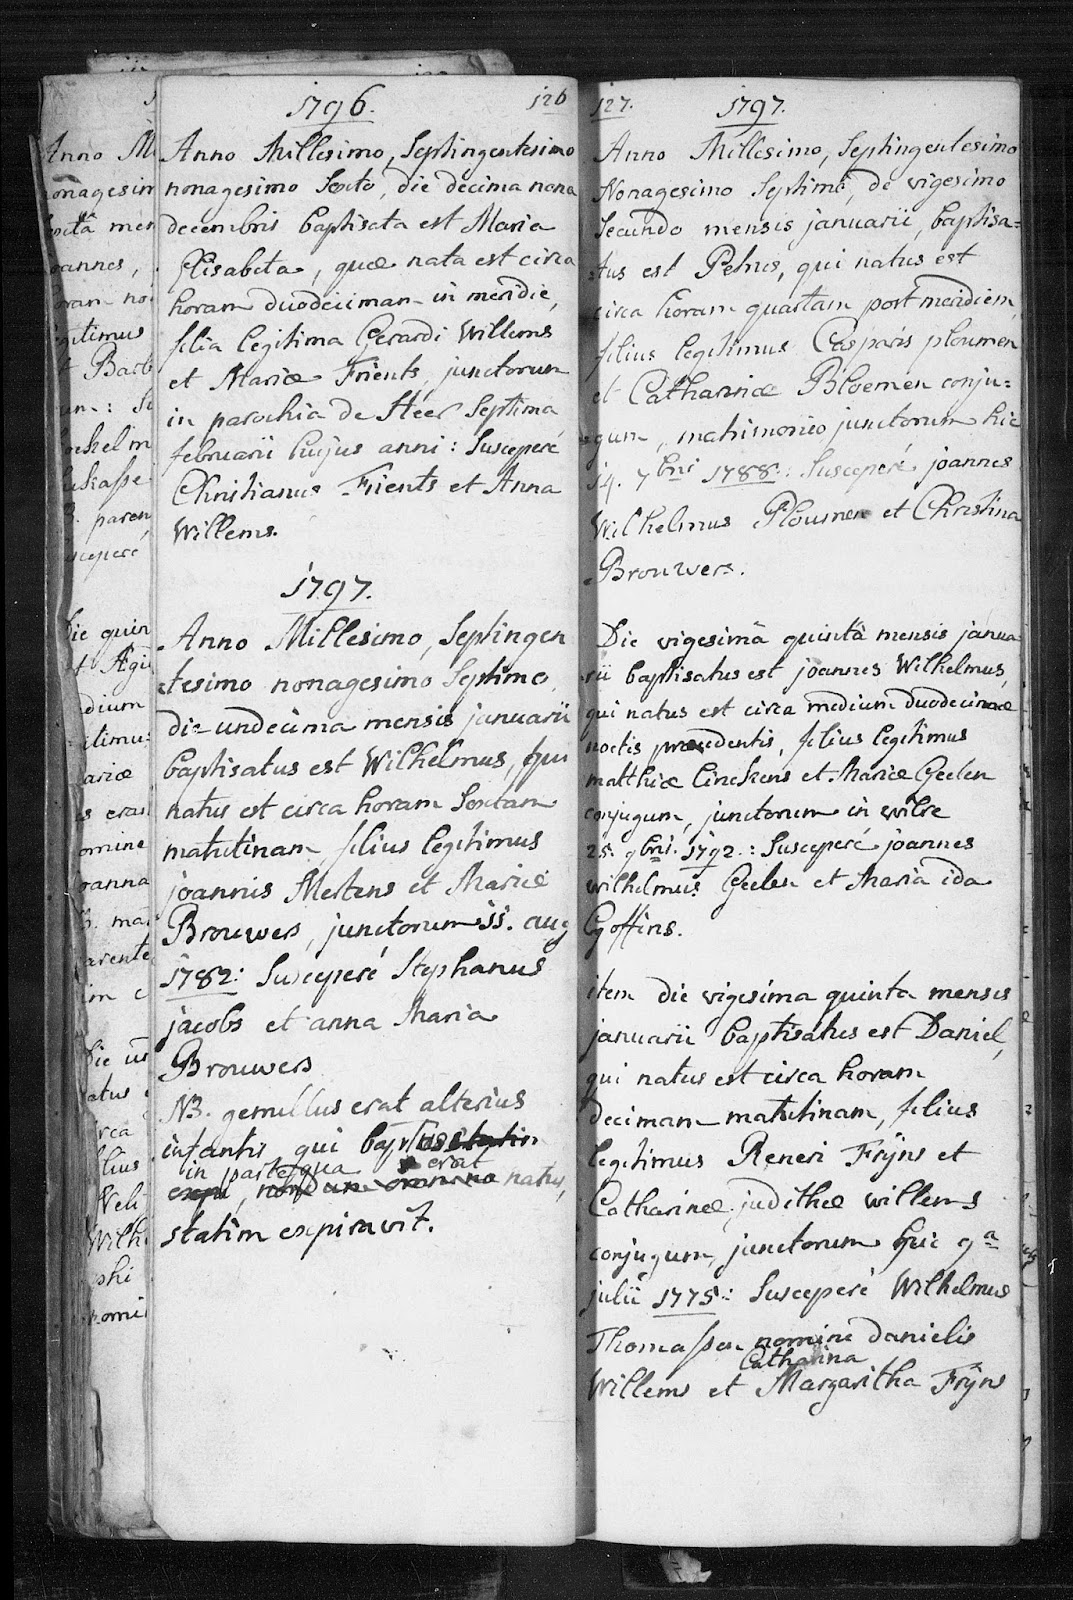 1796.
126
Anno Millesimo, Septingentesimo
nonagesimo Sexto, die decima nona
decembris baptisata est Maria
Elisabeta, quæ nata est circa
horam duodeciman in meridie,
filia legitima Gerardi Willems
et Mariæ Frients, junctorum
in parochia de Heer Septima
februarii hujus anni: Susceperé
Christianus Frients et Anna
Willems.
1797.
Anno Millesimo, Septingen
tesimo nonagesimo Septimo,
die undecima mensis januarii
baptisatus est Wilhelmus, qui
natus est circa horam Sextam
matutinam filius legitimus
joannis Mertens et Mariæ
Brouwers, junctorum 11. aug
1782: Susceperé Stephanus
jacobs et anna Maria
Brouwers
NB. gemellus erat alterius
infantis qui baptisatus
in parte qua erat
natus,
statim expiravit.
127.
1797.
Anno Millesimo, Septingentesimo
Nonagesimo Septimo, de vigesimo
Secundo mensis januarii, baptisa=
=tus est Petrus, qui natus est
circa horam quartam post meridiem,
filius legitimus Casparis ploumen
et Catharinæ Bloemen conju=
=gum, matrimonio junctorum hic
14. 7bris 1788: Susceperé joannes
Wilhelmus Ploumen et Christina
Brouwers.
Die vigesimâ quintâ mensis janua
rii baptisatus est joannes Wilhelmus,
qui natus est circa medium duodecimæ
noctis præcedentis, filius legitimus
matthiæ Linckens et Mariæ Geelen
conjugum, junctorum in wilre
25. 9bris. 1792.: Susceperé joannes
wilhelmus Geelen et Maria ida
Goffins.
item die vigesima quinta mensis
januarii baptisatus est Daniel,
qui natus est circa horam
deciman matutinam, filius
legitimus Reneri Frÿns et
Catharinæ judithæ willems
conjugum, junctorum hic 9a
julii 1775: Susceperé Wilhelmus
Thomassen nomine danielis
Catharina
Willems et Margaritha Frÿns